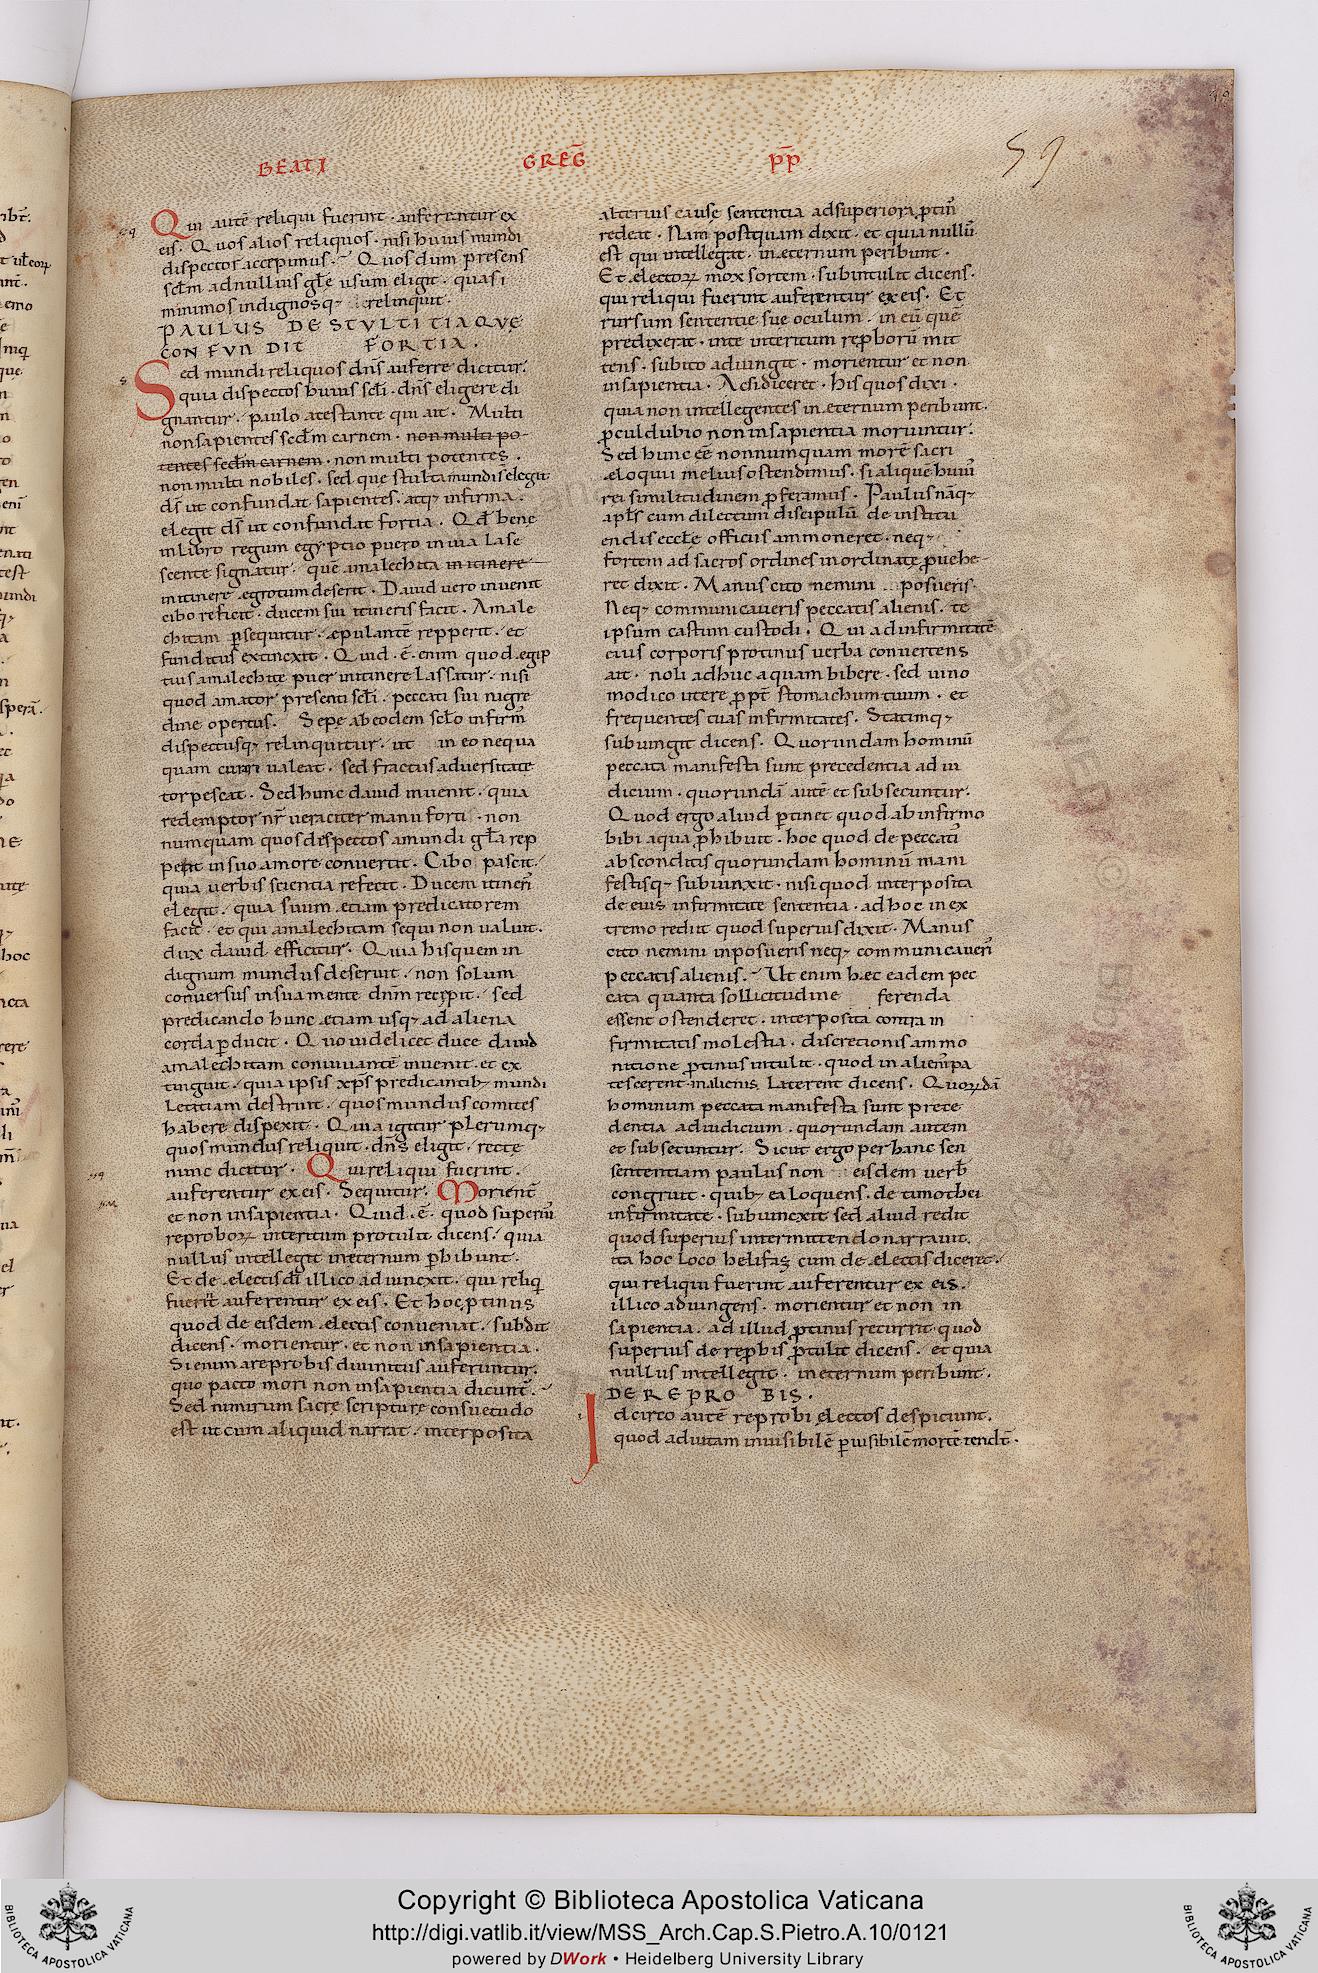 BEATI GREḠ P̄P̄.
59
Qui autē reliqui fuerint · auferentur ex
eis · Quos alios reliquos · nisi huius mundi
dispectos accepimus · Quos dum presens
sclm ad nullius glē usum eligit · quasi
minimos indignosq; relinquit ·
PAULUS DE STVLTITIA QVE
CONFVNDIT FORTIA .
Sed mundi reliquos dns auferre dicitur .
quia dispectos huius scli · dns eligere di
gnatur · paulo atestante qui ait · Multi
non sapientes scdm carnem · non multi po-
tentes scdm carnem · non multi potentes .
non multi nobiles · sed que stulta mundi s̄ elegit
ds̄ ut confundat sapientes · atq; infirma .
elegit ds̄ ut confundat fortia · Qd bene
in libro regum egyptio puero in uia lase
scente signatur · quē amalechita in itinere
in itinere egrotum deserit · Dauid uero inuenit
cibo reficit · ducem sui itineris facit · Amale
chitam p̱sequitur · epulantē repperit · et
funditus extincxit · Quid · ē · enim quod egip
tius amalechite puer in itinere lassatur · nisi
quod amator presenti scli · peccati sui nigre
dine opertus · Sepe ab eodem sclo infirm̄
dispectusq; relinquitur · ut in eo nequa
quam curri ualeat · sed fractus aduersitate
torpescat · Sed hunc dauid inuenit · quia
redemptor nr̄ ueraciter manu fortis · non
numquam quos despectos a mundi gla rep
perit in suo amore conuertit · Cibo pascit ·
quia uerbis scientia refecit · Ducem itineri
elegit · quia suum etiam predicatorem
facit · et qui amalechitam sequi non ualuit .
dux dauid efficitur · Quia his quem in
dignum mundus deseruit · non solum
conuersus in sua mente dnm recipit · sed
predicando hunc etiam usq; ad aliena
corda p̱ducit · Quo uidelicet duce dauid
amalechitam conuiuantē inuenit · et ex
tinguit · quia ipsis xp̄s predicantib; mundi
letitiam destruit · quos mundus comites
habere dispexit · Quia igitur plerumq;
quos mundus reliquit · dns eligit · recte
nunc dicitur · Qui reliqui fuerint .
auferentur ex eis · Sequitur · Morient̄
et non in sapientia · Quid · ē · quod superiū
reproboꝝ interitum protulit dicens · quia
nullus intellegit in eternum p̱hibunt ·
Et de electis dū illico adiuncxit · qui reliq
fuerīt auferentur ex eis · Et hoc ꝓtinus
quod de eisdem electis conueniat · subdit
dicens · morientur · et non in sapientia ·
Si enim a reprobis diuinitus auferuntur .
quo pacto mori non in sapientia dicunt̄ .
Sed nimirum sacre scripture consuetudo
est ut cum aliquid narrat · interposita
alterius cause sententia ad superiora ꝓtin̄
redeat · Nam postquam dixit · et quia nullū
est qui intellegat · in eternum peribunt ·
Et electoꝝ mox sortem · subintulit dicens ·
qui reliqui fuerint auferentur ex eis · Et
rursum sententie sue oculum · in eū que
predixerat · inte interitum reproborū mit
tens · subito adiungit · morientur et non
in sapientia · Ac si diceret · his quos dixi ·
quia non intellegentes in eternum peribunt ·
ꝓculdubio non in sapientia moriuntur .
Sed hunc eē nonnumquam morē sacri
eloquii melius ostendimus · si aliquē huiū
rei similitudinem ꝓferamus · Paulus nāq;
apls cum dilectum discipulū de institu
endis eccle officiis ammoneret · neq;
fortem ad sacros ordines inordinate ꝓuehe-
ret dixit · Manus cito nemini posueris ·
Neq; communicaueris peccatis alienis · te
ipsum castum custodi · Qui ad infirmitatē
eius corporis protinus uerba conuertens
ait · noli adhuc aquam bibere · sed uino
modico utere ꝓpt̄ stomachum tuum · et
frequentes tuas infirmitates · Statimq;
subiungit dicens · Quorundam hominū
peccata manifesta sunt precedentia ad iu
dicium · quorundā autē et subsecuntur .
Quod ergo aliud p̱tinet quod ab infirmo
bibi aqua ꝓhibuit · hoc quod de peccatū
absconditis quorundam hominū mani
festisq; subiunxit · nisi quod interposita
de eius infirmitate sententia · ad hoc in ex
tremo rediit quod superius dixit · Manus
cito nemini inposueris neq; communicaueri
peccatis alienis · Ut enim hec eadem pec
cata quanta sollicitudine ferenda
essent ostenderet · interposita contra in
firmitatis molestia · discretionis ammo
nitione ꝓtinus intulit · quod in alienis pa
tescerent in alienis laterent dicens · Quoꝝdā
hominum peccata manifesta sunt prece
dentia ad iudicium · quorundam autem
et subsecuntur · Sicut ergo per hanc sen
sententiam paulus non eisdem uerb̄
congruit · quib; ea loquens · de timothei
infirmitate · subiuncxit sed aliud rediit
quod superius intermittendo narrauit ·
ita hoc loco helifaz cum de electis diceret ·
qui reliqui fuerint auferentur ex eis .
illico adiungens · morientur et non in
sapientia · ad illud ꝓtinus recurrit quod
superius de reꝓbis ꝓtulit dicens · et quia
nullus intellegit · in eternum peribunt ·
DE REPROBIS .
Idcirco autē reprobi electos despiciunt .
quod ad uitam inuisibilē p̱ uisibilē mortē tendt̄ .
Copyright © Biblioteca Apostolica Vaticana
http://digi.vatlib.it/view/MSS_Arch.Cap.S.Pietro.A.10/0121
powered by DWork • Heidelberg University Library
BIBLIOTECA APOSTOLICA VATICANA
BIBLIOTECA APOSTOLICA VATICANA